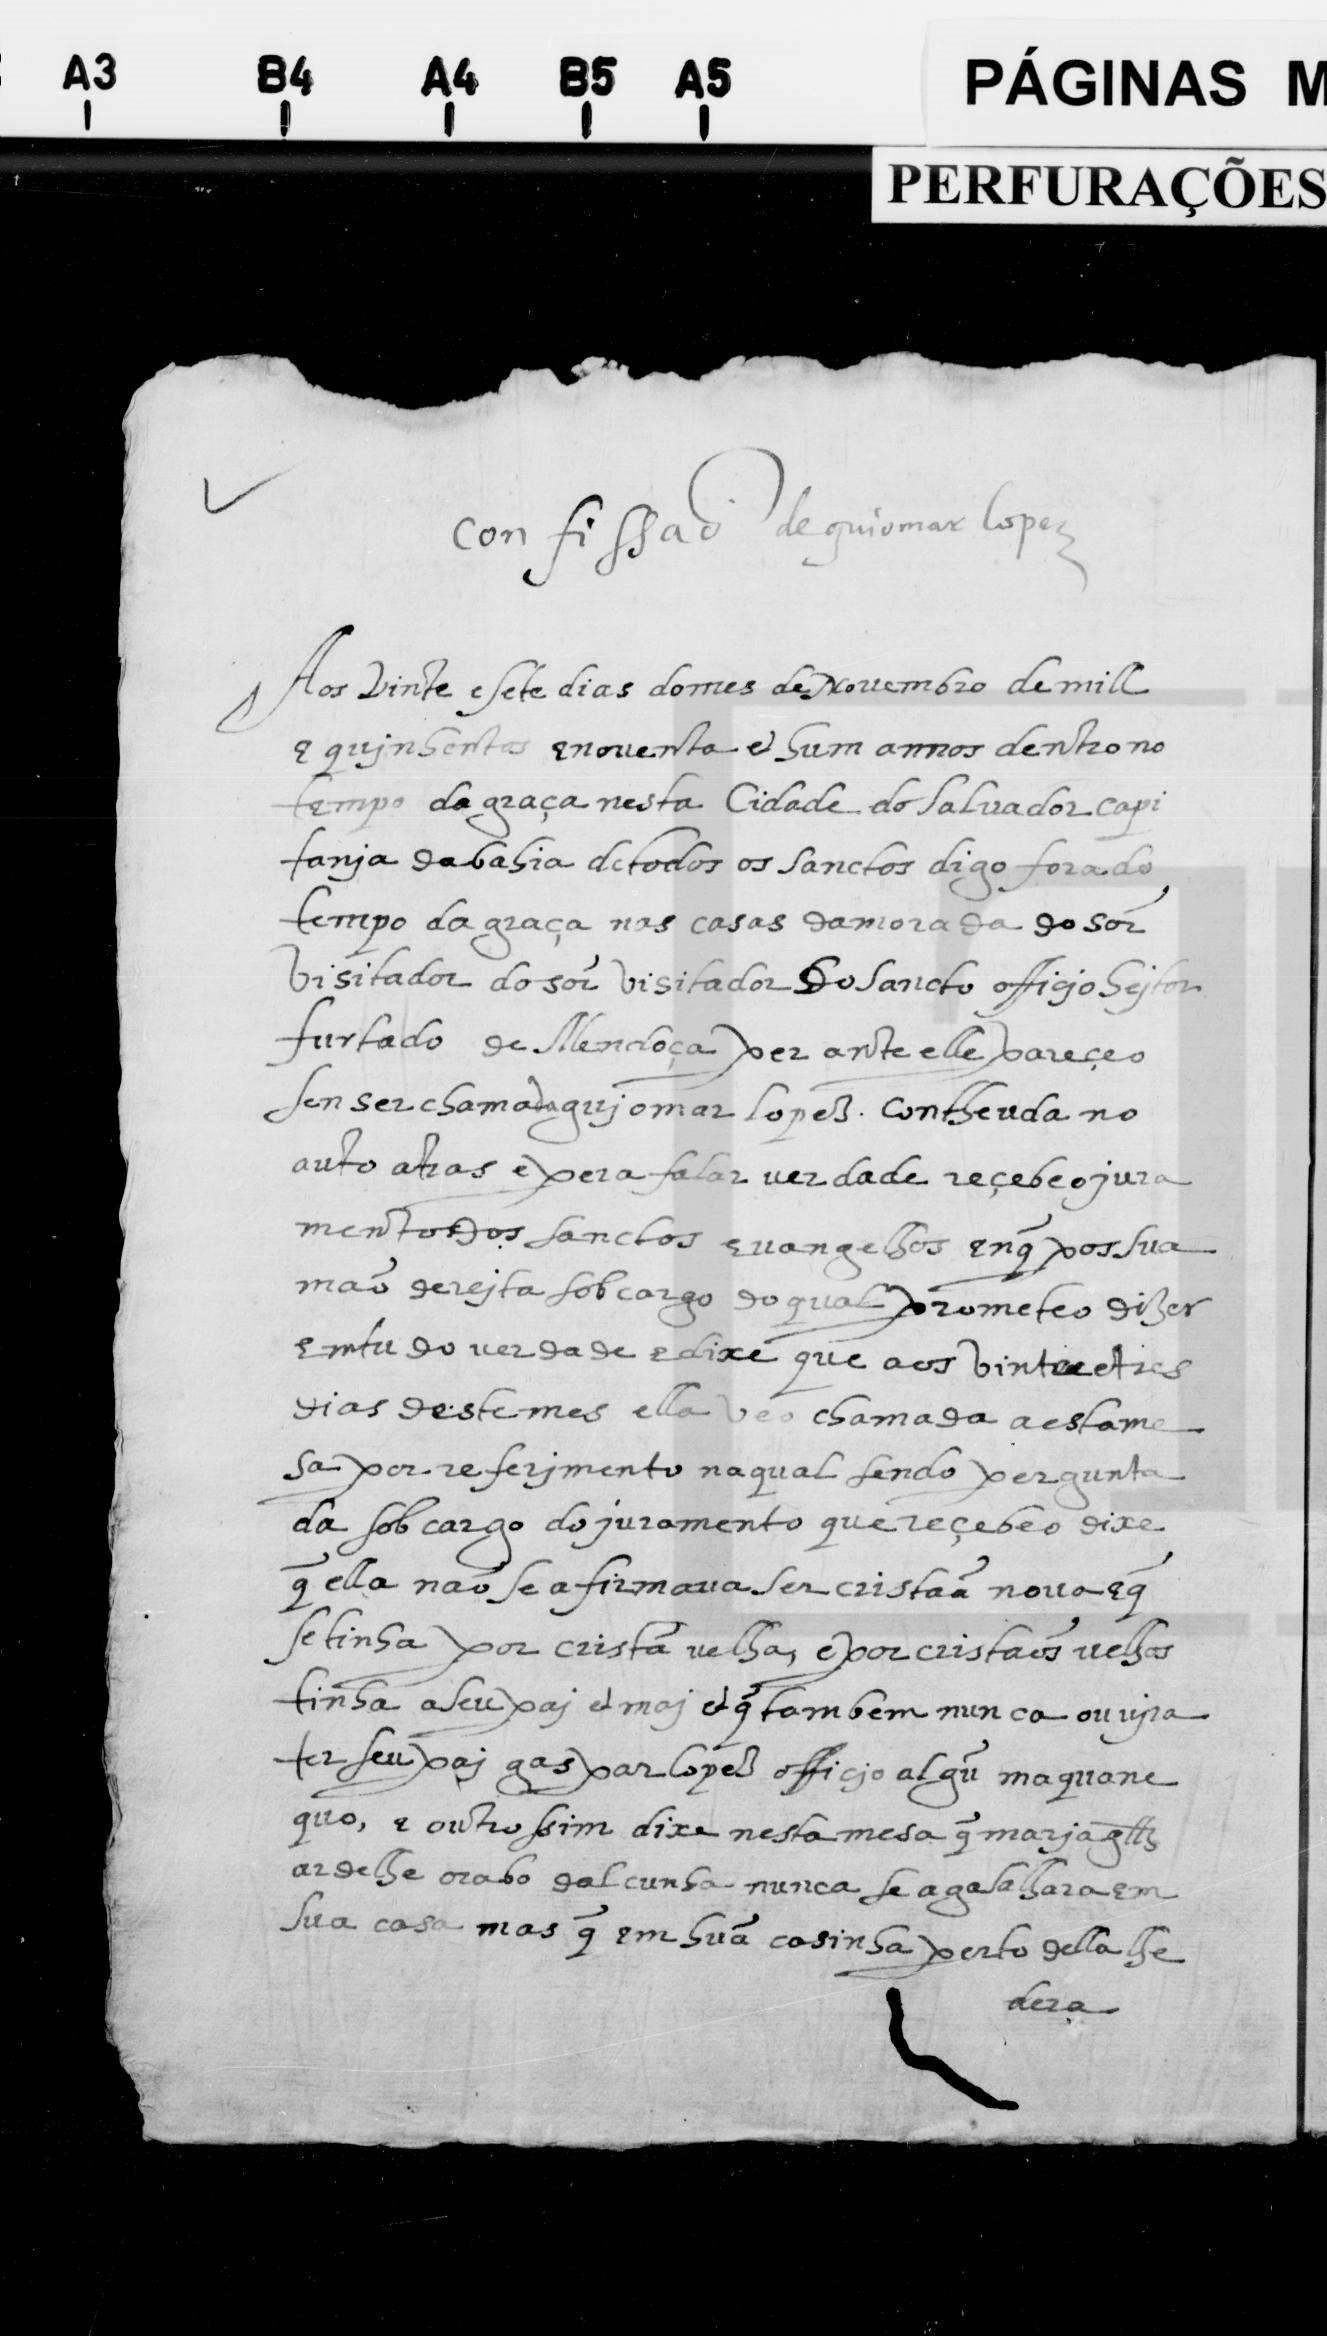 A3 B4 A4 B5 A5
PÁGINAS M
PERFURAÇÕES
confissaõ de guiomar lopez
Aos vinte e sete dias do mes de Novembro de mill
e quinhentos e noventa e hum annos dentro no
tempo da graça nesta Cidade do Salvador capi
tanja da bahia de todos os sanctos digo fora do
tempo da graça nas casas da morada do sõr
visitador do sõr visitador do sancto officjo hejtor
furtado de Mendoça per ante elle pareçeo
sen ser chamada gujomar lopez. contheuda no
auto atras e pera falar verdade reçebeo jura
mento dos sanctos evangelhos en q̃ pos sua
maõ derejta sob cargo do qual prometeo dizer
em tudo verdade e dixe que aos vinte e tres
dias deste mes ella veo chamada a esta me
sa por referjmento na qual sendo pergunta
da sob cargo do juramento que reçebeo dixe
q̃ ella naõ se afirmava ser cristaã nova e q̃
se tinha por cristã velha, e por cristaõs velhos
tinha a seu paj e maj e q̃ tambem nunca ouvjra
ter seu paj gaspar lopez officjo algũ maquane
quo, e outrossim dixe nesta mesa q̃ marja glz
ardelhe o rabo dalcunha nunca se agasalhara em
sua casa mas q̃ em huã casinha perto della lhe
dera